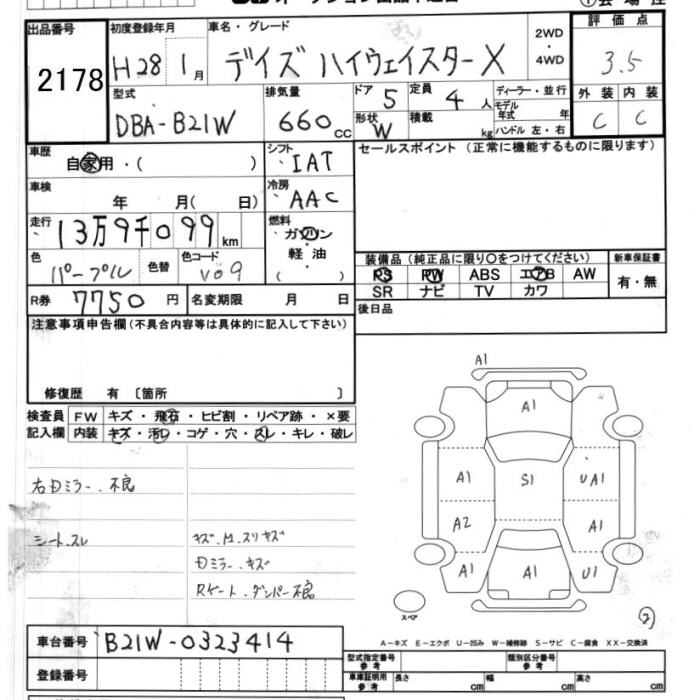 出品番号
2178
初度登録年月
H28 1月
車名・グレード
デイズ ハイウェイスターX
2WD
・
4WD
評価点
3.5
外装 内装
C C
型式
DBA-B21W
排気量
660cc
ドア
5
定員
4人
形状
W
積載
kg
ディーラー・並行
モデル
年式 年
ハンドル 左・右
車歴
自家用・( )
シフト
IAT
セールスポイント (正常に機能するものに限ります)
車検
年 月( 日)
冷房
AAC
走行
13万9千099km
燃料
ガソリン
軽・油
( )
色
パープル
色替
色コード
V09
装備品 (純正品に限り○をつけてください)
PS PW ABS エアB AW
SR ナビ TV カワ
新車保証書
有・無
R券
7750円
名変期限 月 日
後日品
注意事項申告欄(不具合内容等は具体的に記入して下さい)
修復歴 有 〔箇所 〕
検査員
記入欄
FW キズ・飛石・ヒビ割・リペア跡・×要
内装 キズ・汚レ・コゲ・穴・スレ・キレ・破レ
右Dミラー.不良
シート.スレ
キズ.M.スリキズ
Dミラー.キズ
Rゲート.ダンパー不良
A1
A1
A1 S1 UA1
A2 A1
A1 A1 U1
スペア
車台番号
B21W-0323414
登録番号
A-キズ E-エクボ U-凹み W-補修跡 S-サビ C-腐食 XX-交換済
型式指定番号
参考
類別区分番号
参考
車庫証明用
参考
長さ cm 幅 cm 高さ cm